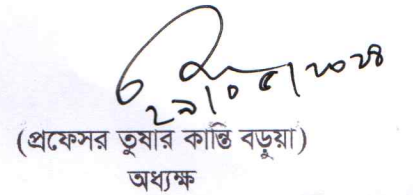 ২৯|০৫|২০২৪
(প্রফেসর তুষার কান্তি বড়ুয়া)
অধ্যক্ষ